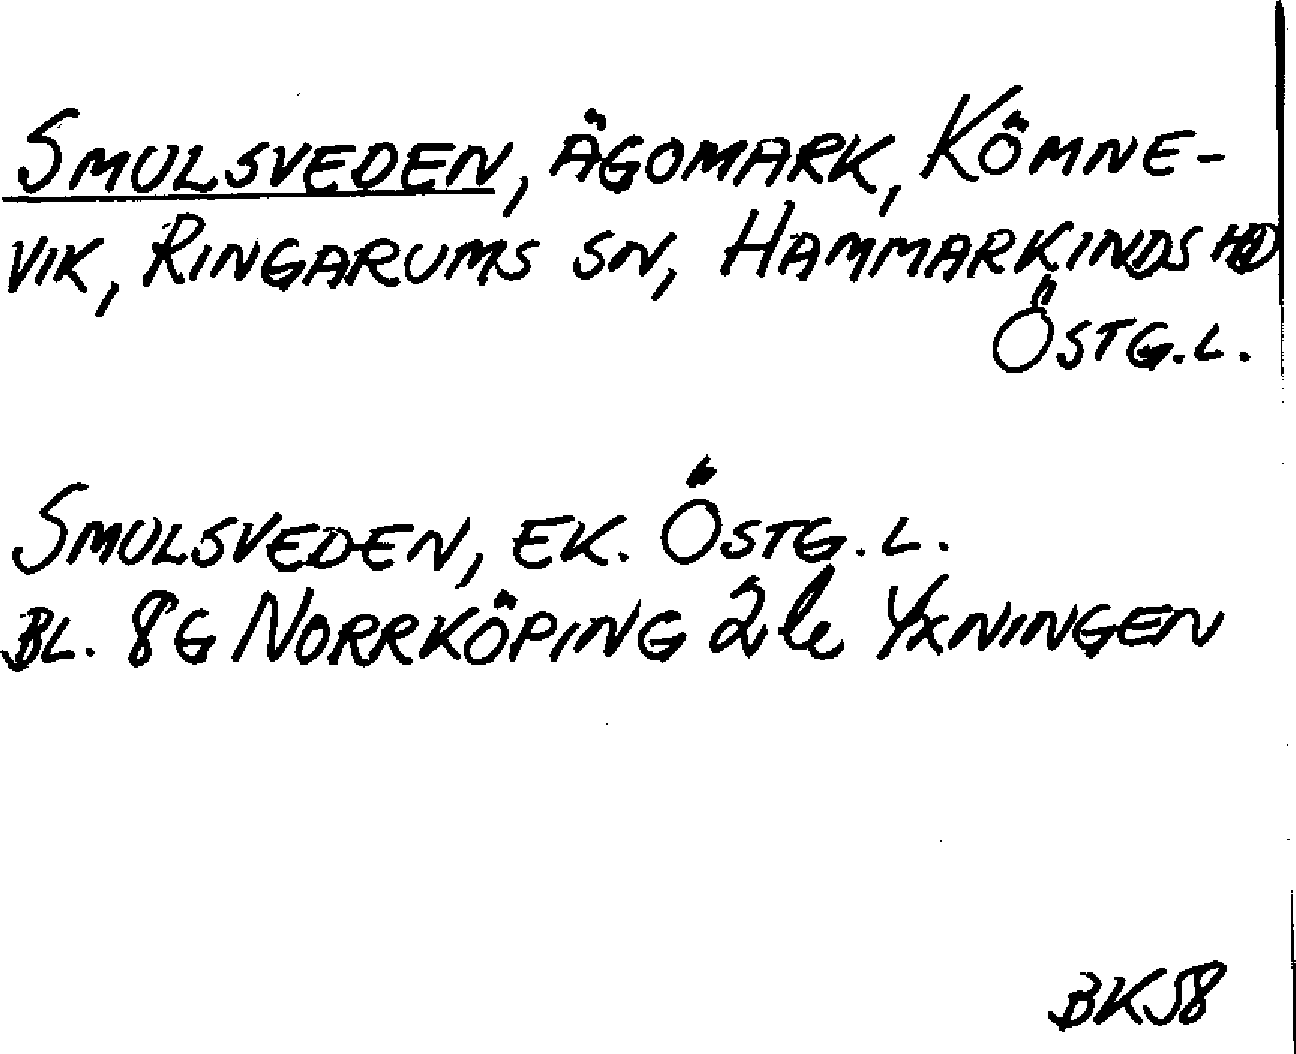 SMULSVEDEN, ÄGOMARK, KÖMNE-
VIK, RINGARUMS SN, HAMMARKINDS HD
ÖSTG.L.
SMULSVEDEN, EK. ÖSTG.L.
BL. 8G NORRKÖPING 2le YXNINGEN
BK58